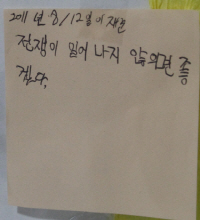 2011 년 8/12일
전쟁이 일어 나지 않으면 좋
겠다.